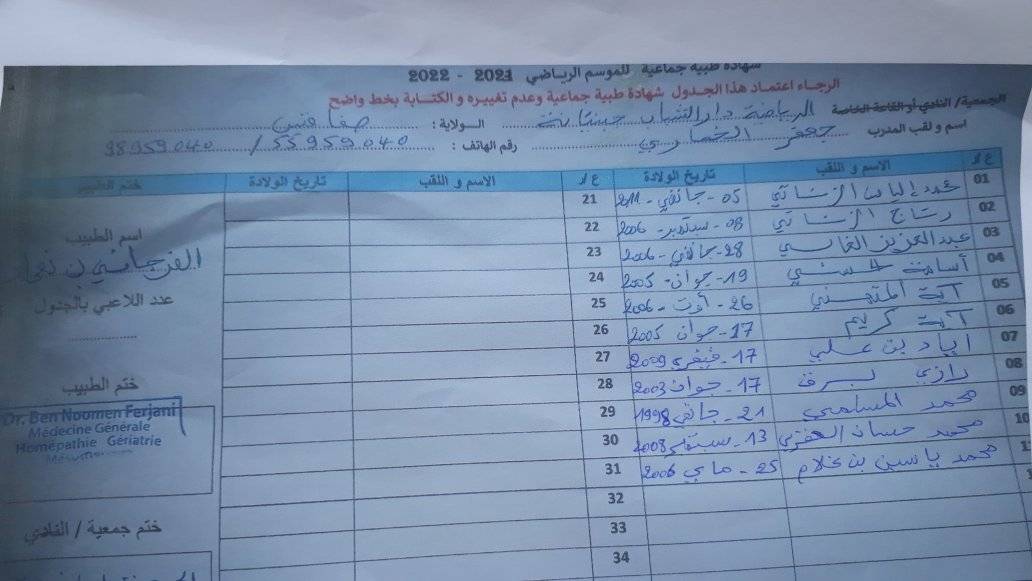 شهادة طبية جماعية للموسم الرياضي 2021 - 2022
الرجاء اعتماد هذا الجدول شهادة طبية جماعية وعدم تغييره و الكتابة بخط واضح
الجمعية/ النادي أو القاعة الخاصة الرياضة دار الشباب جبنيانة الولاية : صفاقس
اسم و لقب المدرب جعفر الخماري رقم الهاتف : 55959040 / 98959040
ع/ر الاسم و اللقب تاريخ الولادة ع/ر الاسم و اللقب تاريخ الولادة ختم الطبيب
01 محمد إلياس 05 - جانفي - 2011 21
02 08 - سبتمبر - 2006 22
03 عبد العزيز 28 - جانفي - 2006 23
04 أسامة 19 - جوان - 2005 24
05 آية 26 - أوت - 2006 25
06 آية كريم 17 - جوان 2005 26
07 إياد بن علي 17 - فيفري 2009 27
08 رازي 17 - جوان 2003 28
09 محمد المسلمي 21 - جانفي 1998 29
10 محمد حسان 13 - سبتمبر 2008 30
محمد ياسين بن غلام 25 - ماي 2006 31
32
33
34
اسم الطبيب
الفرجاني بن
عدد اللاعبي بالجدول
ختم الطبيب
Dr. Ben Noomen Ferjani
Médecine Générale
Homépathie Gériatrie
ختم جمعية / النادي